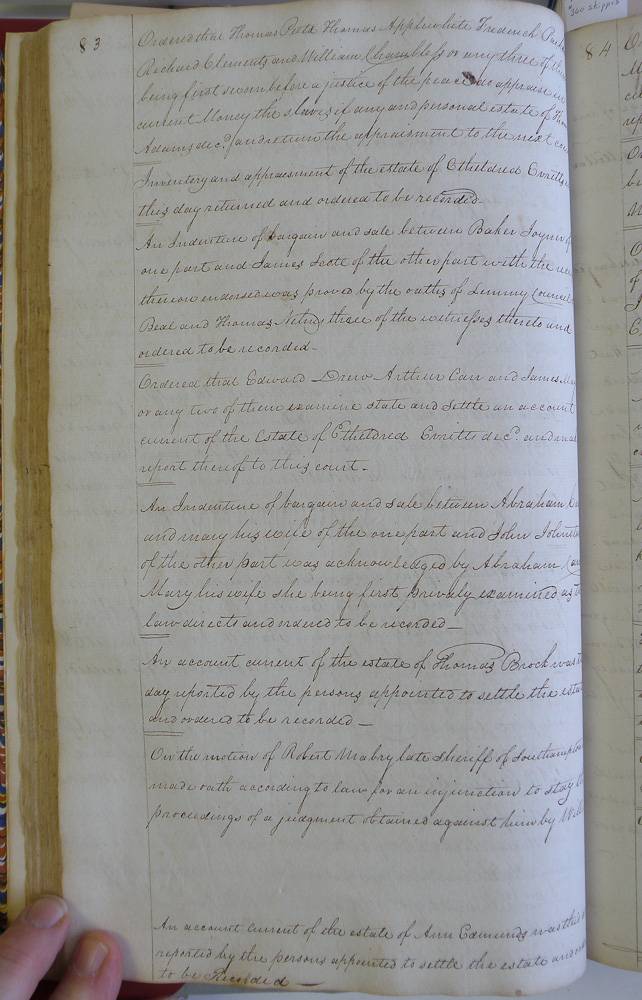 360 skipped
83
Ordered that Thomas Pota Thomas Applewhite Fredrick Parker
Richard Clements and William Chambless or any three of them
being first sworn before a justice of the peace do appraise in
current Money the slaves if any and personal estate of Thomas
Adams decd. and return the appraisment to the next court
Inventory and appraisment of the estate of Etheldred Evritts
this day returned and ordered to be recorded.
An Indenture of bargain and sale between Baker Joyner of
one part and James Scott of the other part with the
thereon endorsed was proved by the oaths of Lemmy Council
Beal and Thomas Nelms three of the witnesses thereto and
ordered to be recorded.
Ordered that Edward Drew Arthur Carr and James
or any two of them examine state and settle an account
current of the Estate of Etheldred Evritts decd. and make
report thereof to this court.
An Indenture of bargain and sale between Abraham
and mary his wife of the one part and John Johnson
of the other part was acknowledged by Abraham
Mary his wife she being first privaly examined as the
law directs and ordered to be recorded
An account current of the estate of Thomas Brock was this
day reported by the persons appointed to settle the estate
and ordered to be recorded
On the motion of Robert Mabry late sheriff of Southampton
made oath according to law for an injunction to stay
proceedings of a judgment obtained against him by
An account current of the estate of Ann Edmunds was this
reported by the persons appointed to settle the estate and
to be Recorded
84